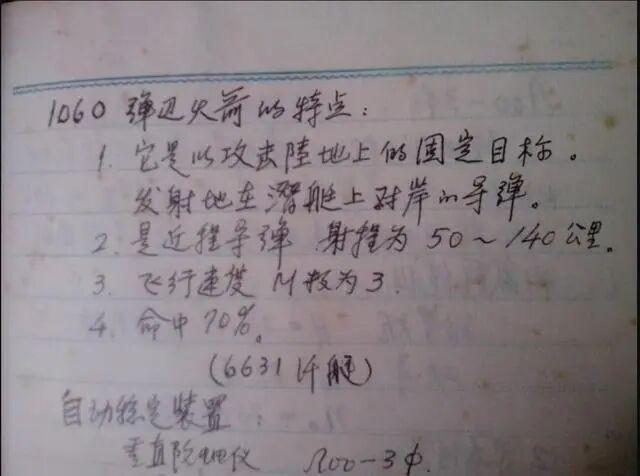 1060 弹道火箭的特点：
1. 它是以攻击陸地上的固定目标。
发射地在潜艇上对岸的导弹。
2. 是近程导弹 射程为 50～140公里。
3. 飞行速度 M数为3.
4. 命中70%。
(6631 潜艇)
自动稳定装置：
垂直陀螺仪 Л00-3ф.